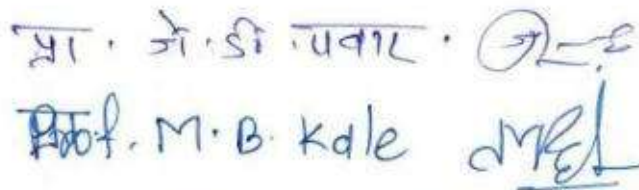 प्रा. जे. डी. पवार.
Prof. M. B. Kale